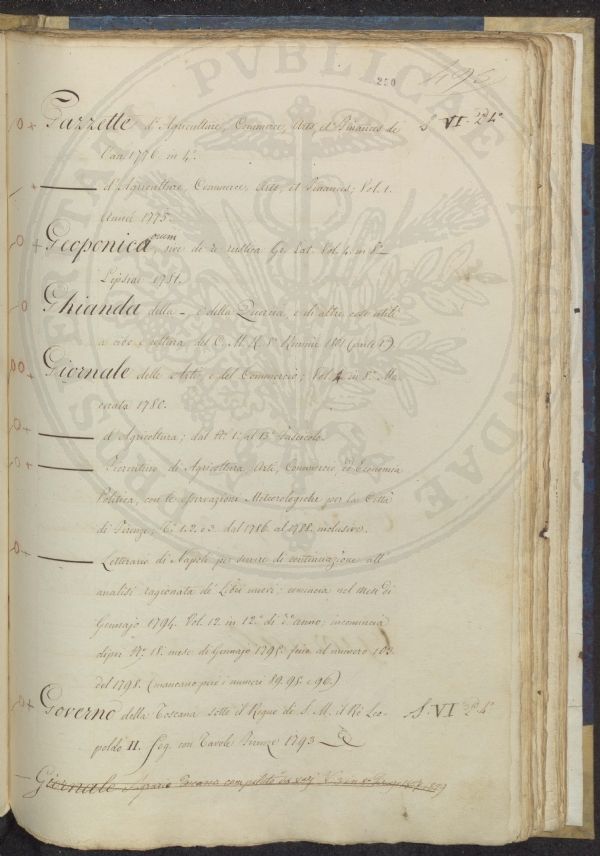 220 496
Gazzette d'Agriculture, Commerce, Arts, et Finances de S. VI. 2. 4°
l'an 1776. in 4°.
d'Agriculture, Commerce, Arts, et Finances; Vol. 1.
Année 1775.
Geoponicorum, sive de re rustica Gr. Lat. Vol. 4. in 8°
Lipsiae 1781.
Ghianda della – e della Quercia, e di altre cose utili
a cibo e coltura, del C. M. R. 8° Rimini 1801 (parte 1ª)
Giornale delle Arti, e del Commercio; Vol. 4 in 8° Ma
cerata 1780.
d'Agricoltura; dal N° 1° al 13° Fascicolo.
Fiorentino di Agricoltura Arti, Commercio, ed Economia
Politica, con le osservazioni Meteorologiche per la Città
di Firenze, T. 1. 2. e 3. dal 1786. al 1788. inclusive.
Letterario di Napoli per servire di continuazione all'
analisi ragionata de' Libri nuovi: comincia nel mese di
Gennajo 1794. Vol. 12 in 12° di anno; incomincia
N° 18. mese di Gennajo 1795. fino al numero 103.
del 1798. (mancano però i numeri 89. 95. e 96.)
Governo della Toscana sotto il Regno di S. M. il Rè Leo- S. VI. 2. 4°
poldo II. fog. con Tavole Firenze 1793
Giornale Agrario Toscano compilato da
PUBLICAE PROSPERITATI